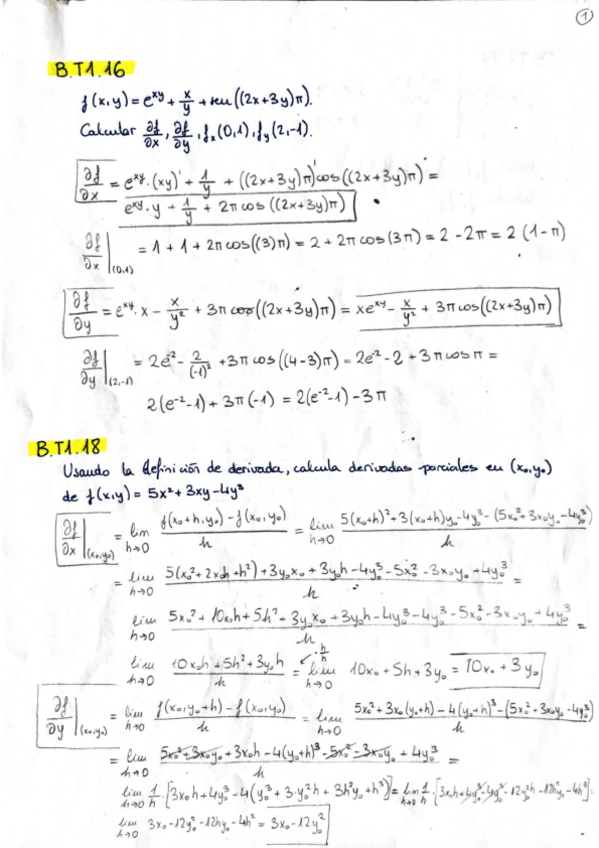 1
B.T1.16
f(x,y) = e^{xy} + x/y + sen((2x+3y)π).
Calcular ∂f/∂x, ∂f/∂y, f_x(0,1), f_y(2,-1).
∂f/∂x = e^{xy}·(xy)' + 1/y + ((2x+3y)π)' cos((2x+3y)π) =
e^{xy}·y + 1/y + 2π cos((2x+3y)π)
∂f/∂x|_(0,1) = 1 + 1 + 2π cos((3)π) = 2 + 2π cos(3π) = 2 - 2π = 2(1-π)
∂f/∂y = e^{xy}·x - x/y² + 3π cos((2x+3y)π) = xe^{xy} - x/y² + 3π cos((2x+3y)π)
∂f/∂y|_(2,-1) = 2e^{-2} - 2/(-1)² + 3π cos((4-3)π) = 2e^{-2} - 2 + 3π cos π =
2(e^{-2}-1) + 3π(-1) = 2(e^{-2}-1) - 3π
B.T1.18
Usando la definición de derivada, calcula derivadas parciales en (x₀,y₀)
de f(x,y) = 5x² + 3xy - 4y³
∂f/∂x|_(x₀,y₀) = lim h→0 f(x₀+h,y₀) - f(x₀,y₀) / h = lim h→0 5(x₀+h)² + 3(x₀+h)y₀ - 4y₀³ - (5x₀² + 3x₀y₀ - 4y₀³) / h
= lim h→0 5(x₀² + 2x₀h + h²) + 3y₀x₀ + 3y₀h - 4y₀³ - 5x₀² - 3x₀y₀ + 4y₀³ / h =
lim h→0 5x₀² + 10x₀h + 5h² + 3y₀x₀ + 3y₀h - 4y₀³ - 4y₀³ - 5x₀² - 3x₀y₀ + 4y₀³ / h =
lim h→0 10x₀h + 5h² + 3y₀h / h = lim h→0 10x₀ + 5h + 3y₀ = 10x₀ + 3y₀
∂f/∂y|_(x₀,y₀) = lim h→0 f(x₀,y₀+h) - f(x₀,y₀) / h = lim h→0 5x₀² + 3x₀(y₀+h) - 4(y₀+h)³ - (5x₀² + 3x₀y₀ - 4y₀³) / h
= lim h→0 5x₀² + 3x₀y₀ + 3x₀h - 4(y₀+h)³ - 5x₀² - 3x₀y₀ + 4y₀³ / h =
lim h→0 1/h · [3x₀h + 4y₀³ - 4(y₀³ + 3·y₀²h + 3h²y₀ + h³)] = lim h→0 1/h · [3x₀h + 4y₀³ - 4y₀³ - 12y₀²h - 12h²y₀ - 4h³] =
lim h→0 3x₀ - 12y₀² - 12hy₀ - 4h² = 3x₀ - 12y₀²